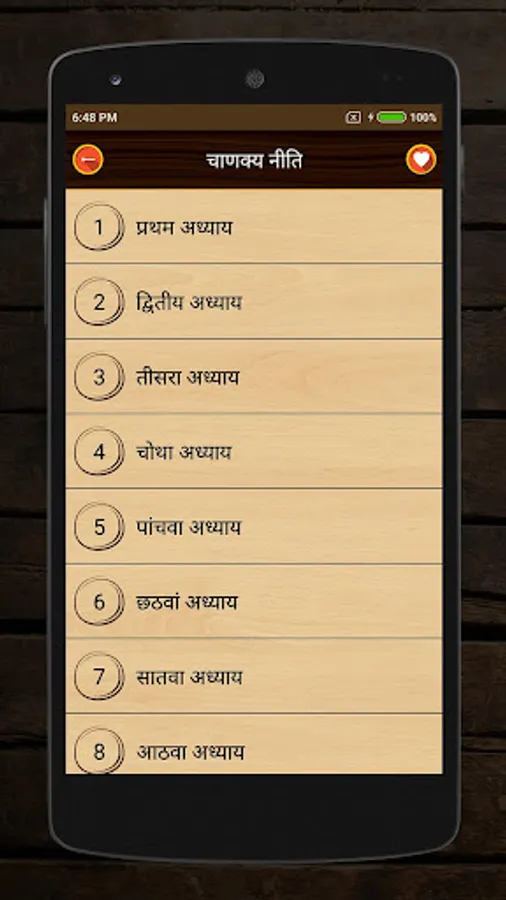 6:48 PM 100%
चाणक्य नीति
1 प्रथम अध्याय
2 द्वितीय अध्याय
3 तीसरा अध्याय
4 चोथा अध्याय
5 पांचवा अध्याय
6 छठवां अध्याय
7 सातवा अध्याय
8 आठवा अध्याय